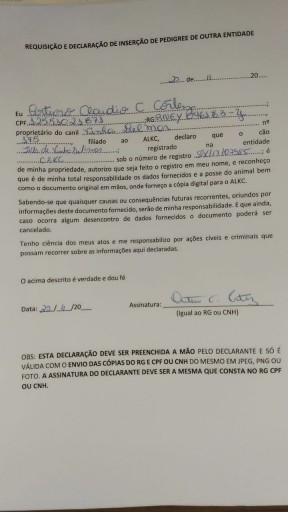 REQUISIÇÃO E DECLARAÇÃO DE INSERÇÃO DE PEDIGREE DE OUTRA ENTIDADE
20 de 11 20
Eu Claudio C
CPF RG
proprietário do canil nº
filiado ao ALKC, declaro que o cão
registrado na entidade
CBKC sob o número de registro é
de minha propriedade, autorizo que seja feito o registro em meu nome, e reconheço
que é de minha total responsabilidade os dados fornecidos e a posse do animal bem
como o documento original em mãos, onde forneço a cópia digital para o ALKC.
Sabendo-se que quaisquer causas ou consequências futuras recorrentes, oriundos por
informações deste documento fornecido, serão de minha responsabilidade. E que ainda,
caso ocorra algum desencontro de dados fornecidos o documento poderá ser
cancelado.
Tenho ciência dos meus atos e me responsabilizo por ações cíveis e criminais que
possam recorrer sobre as informações aqui declaradas.
O acima descrito é verdade e dou fé
Data: /20 Assinatura:
(Igual ao RG ou CNH)
OBS: ESTA DECLARAÇÃO DEVE SER PREENCHIDA A MÃO PELO DECLARANTE E SÓ É
VÁLIDA COM O ENVIO DAS CÓPIAS DO RG E CPF OU CNH DO MESMO EM JPEG, PNG OU
FOTO. A ASSINATURA DO DECLARANTE DEVE SER A MESMA QUE CONSTA NO RG CPF
OU CNH.